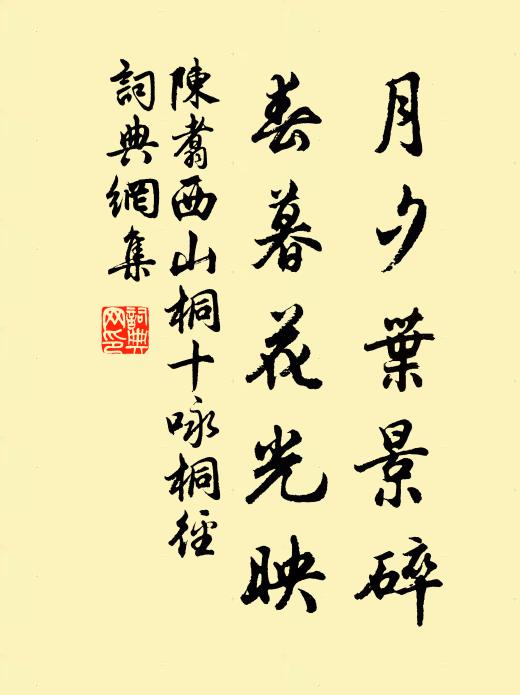 月夕葉景碎
春暮花光映
陳翥西山桐十咏桐徑
詞典網集
詞典网印